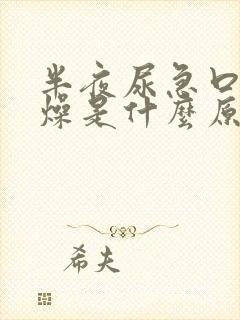 半夜尿急口
燥是什麼原
希夫